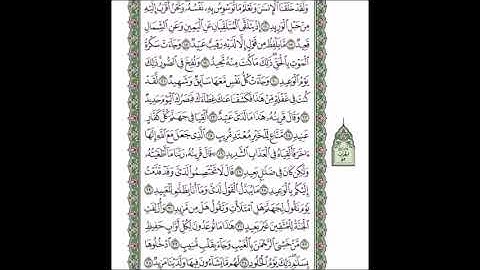 وَلَقَدْ خَلَقْنَا ٱلْإِنسَٰنَ وَنَعْلَمُ مَا تُوَسْوِسُ بِهِۦ نَفْسُهُۥ وَنَحْنُ أَقْرَبُ إِلَيْهِ
مِنْ حَبْلِ ٱلْوَرِيدِ ١٦ إِذْ يَتَلَقَّى ٱلْمُتَلَقِّيَانِ عَنِ ٱلْيَمِينِ وَعَنِ ٱلشِّمَالِ
قَعِيدٌ ١٧ مَّا يَلْفِظُ مِن قَوْلٍ إِلَّا لَدَيْهِ رَقِيبٌ عَتِيدٌ ١٨ وَجَآءَتْ سَكْرَةُ
ٱلْمَوْتِ بِٱلْحَقِّ ذَٰلِكَ مَا كُنتَ مِنْهُ تَحِيدُ ١٩ وَنُفِخَ فِى ٱلصُّورِ ذَٰلِكَ
يَوْمُ ٱلْوَعِيدِ ٢٠ وَجَآءَتْ كُلُّ نَفْسٍ مَّعَهَا سَآئِقٌ وَشَهِيدٌ ٢١ لَّقَدْ
كُنتَ فِى غَفْلَةٍ مِّنْ هَٰذَا فَكَشَفْنَا عَنكَ غِطَآءَكَ فَبَصَرُكَ ٱلْيَوْمَ حَدِيدٌ
٢٢ وَقَالَ قَرِينُهُۥ هَٰذَا مَا لَدَىَّ عَتِيدٌ ٢٣ أَلْقِيَا فِى جَهَنَّمَ كُلَّ كَفَّارٍ
عَنِيدٍ ٢٤ مَّنَّاعٍ لِّلْخَيْرِ مُعْتَدٍ مُّرِيبٍ ٢٥ ٱلَّذِى جَعَلَ مَعَ ٱللَّهِ إِلَٰهًا
ءَاخَرَ فَأَلْقِيَاهُ فِى ٱلْعَذَابِ ٱلشَّدِيدِ ٢٦ قَالَ قَرِينُهُۥ رَبَّنَا مَآ أَطْغَيْتُهُۥ
وَلَٰكِن كَانَ فِى ضَلَٰلٍۭ بَعِيدٍ ٢٧ قَالَ لَا تَخْتَصِمُوا۟ لَدَىَّ وَقَدْ قَدَّمْتُ
إِلَيْكُم بِٱلْوَعِيدِ ٢٨ مَا يُبَدَّلُ ٱلْقَوْلُ لَدَىَّ وَمَآ أَنَا۠ بِظَلَّٰمٍ لِّلْعَبِيدِ ٢٩
يَوْمَ نَقُولُ لِجَهَنَّمَ هَلِ ٱمْتَلَأْتِ وَتَقُولُ هَلْ مِن مَّزِيدٍ ٣٠ وَأُزْلِفَتِ
ٱلْجَنَّةُ لِلْمُتَّقِينَ غَيْرَ بَعِيدٍ ٣١ هَٰذَا مَا تُوعَدُونَ لِكُلِّ أَوَّابٍ حَفِيظٍ
٣٢ مَّنْ خَشِىَ ٱلرَّحْمَٰنَ بِٱلْغَيْبِ وَجَآءَ بِقَلْبٍ مُّنِيبٍ ٣٣ ٱدْخُلُوهَا
بِسَلَٰمٍ ذَٰلِكَ يَوْمُ ٱلْخُلُودِ ٣٤ لَهُم مَّا يَشَآءُونَ فِيهَا وَلَدَيْنَا مَزِيدٌ ٣٥